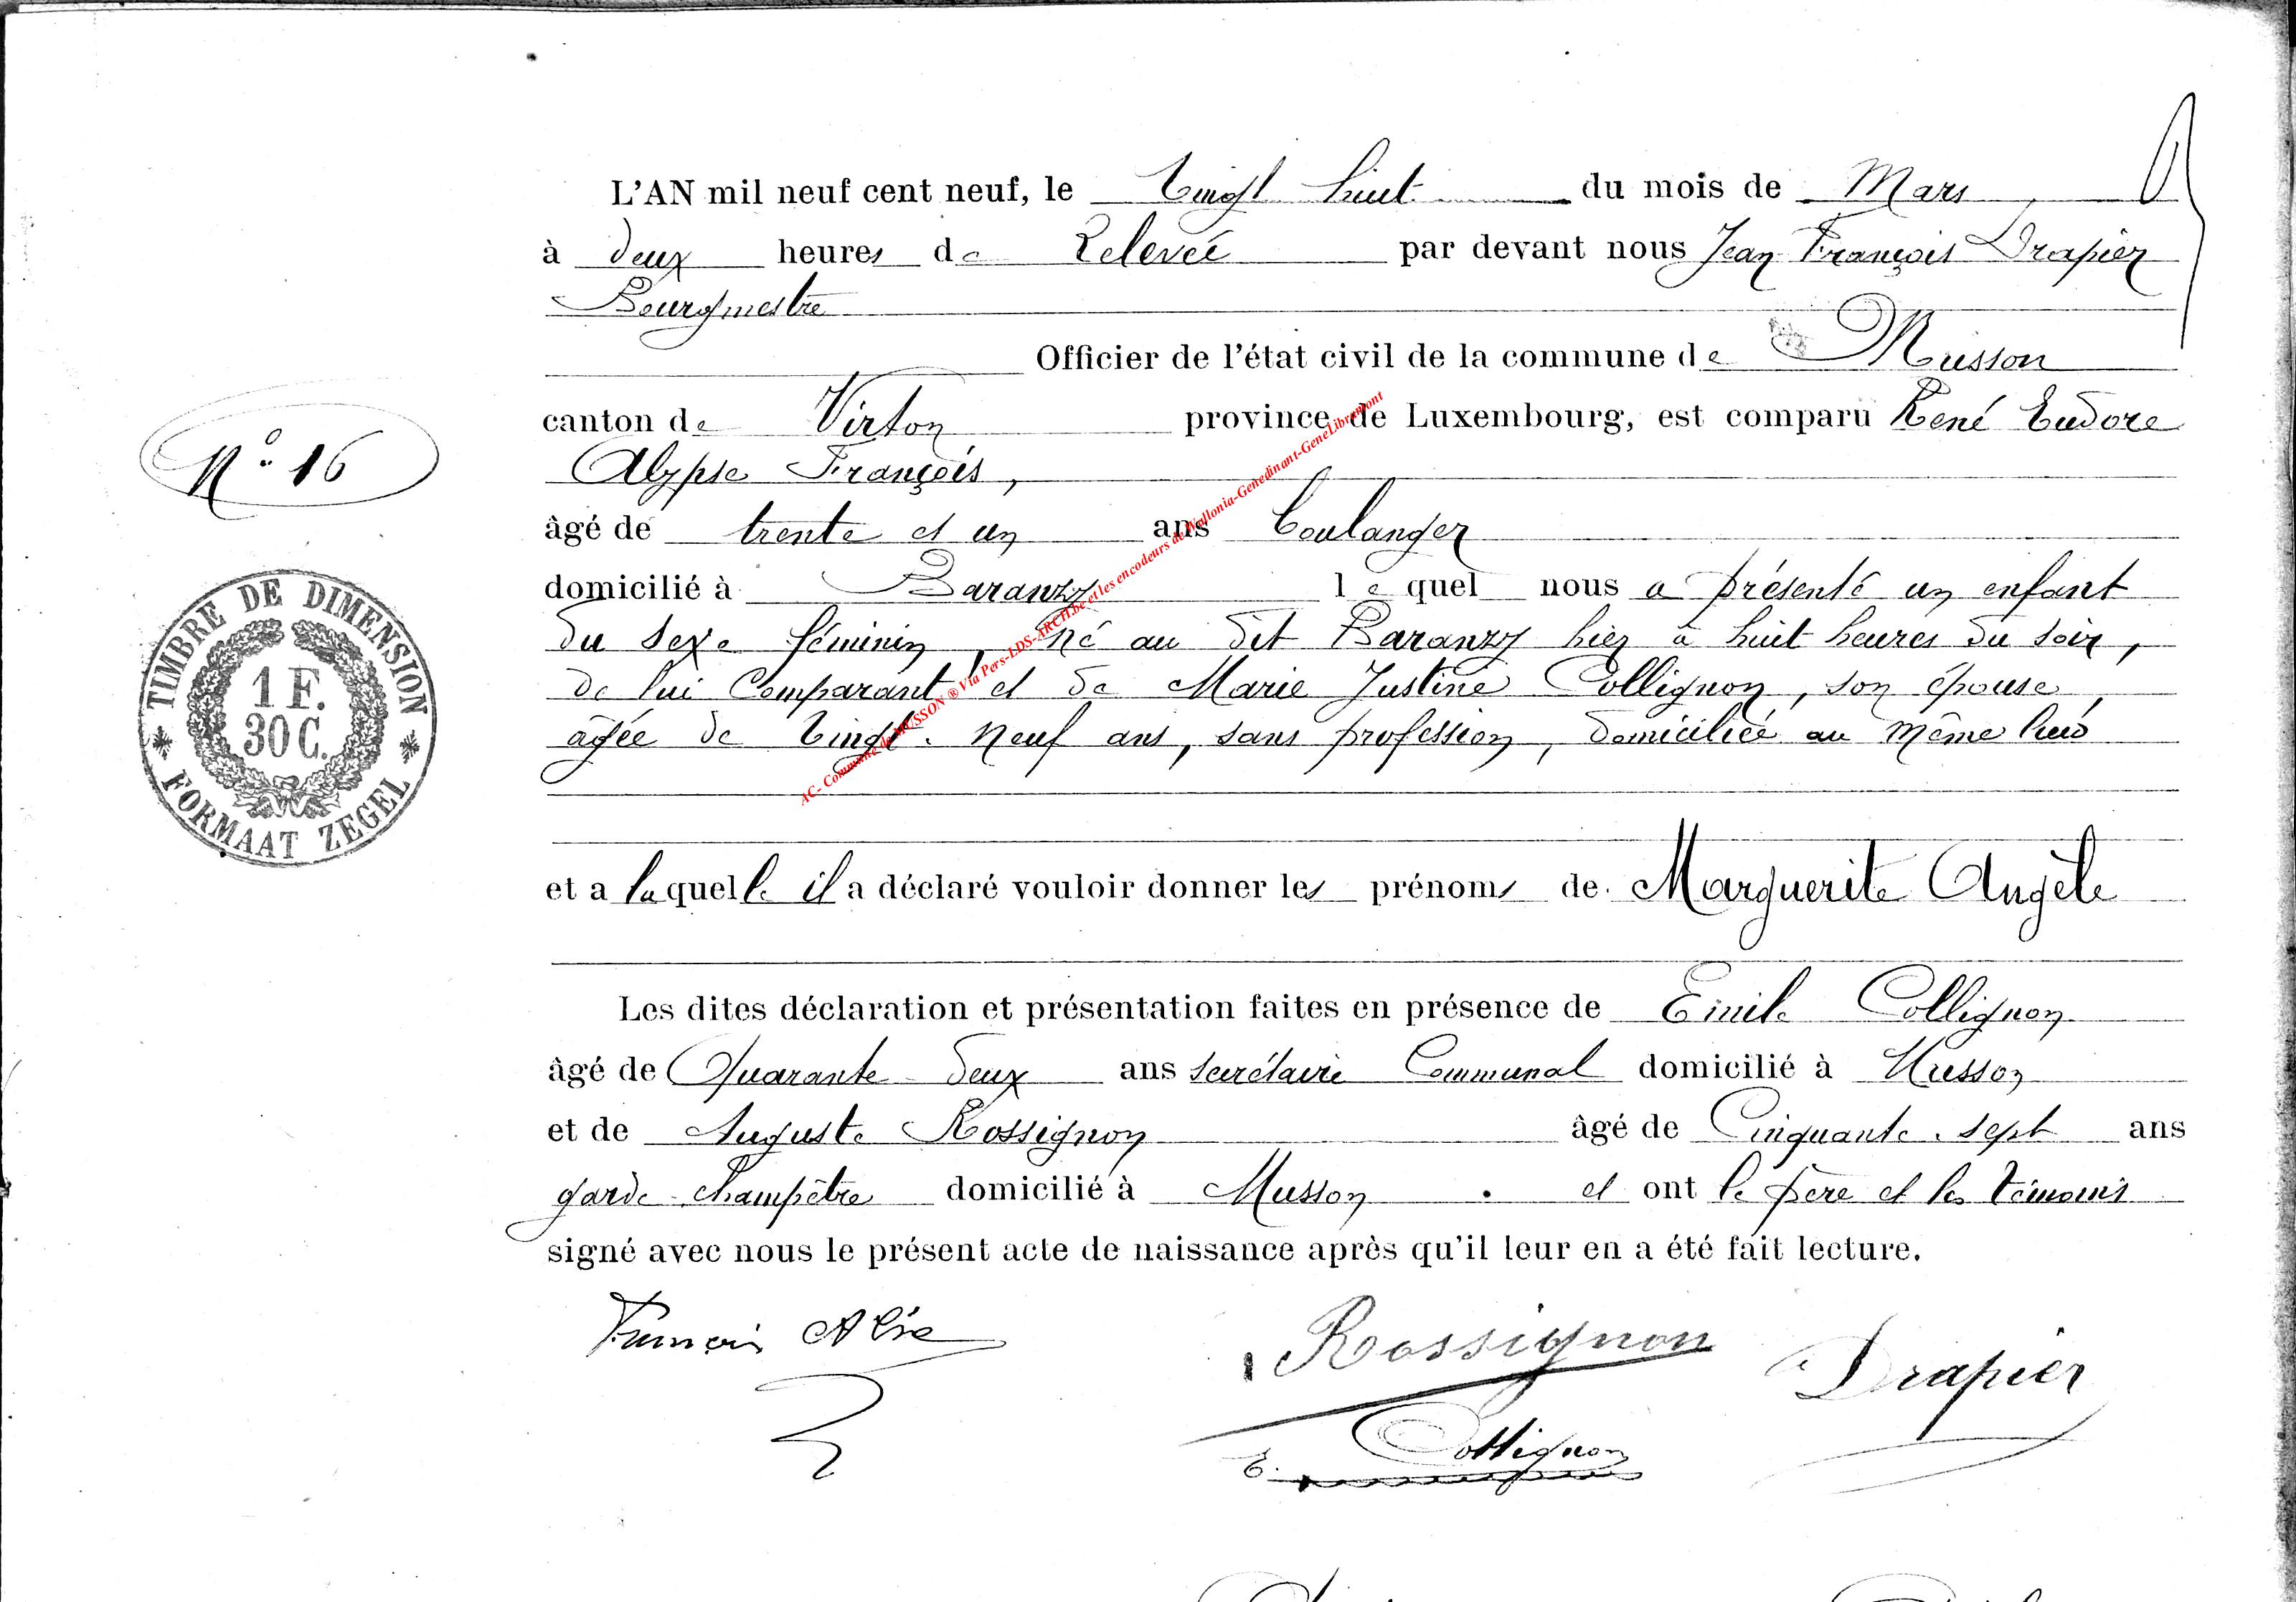 L'AN mil neuf cent neuf, le Vingt huit du mois de Mars
à deux heures de Relevée par devant nous Jean François Drapier
Bourgmestre
Officier de l'état civil de la commune de Musson
canton de Virton province de Luxembourg, est comparu René Eudore
Alypse François,
âgé de trente et un ans boulanger
domicilié à Baranzy lequel nous a présenté un enfant
du sexe féminin, né au dit Baranzy hier à huit heures du soir,
de lui Comparant et de Marie Justine Collignon, son épouse,
âgée de Vingt-Neuf ans, sans profession, domiciliée au même lieu
et a laquelle il a déclaré vouloir donner les prénoms de Marguerite Angèle
Les dites déclaration et présentation faites en présence de Emile Collignon
âgé de Quarante-deux ans secrétaire Communal domicilié à Musson
et de Auguste Rossignon âgé de Cinquante-sept ans
garde-champêtre domicilié à Musson. et ont le père et les témoins
signé avec nous le présent acte de naissance après qu'il leur en a été fait lecture.
N° 16
TIMBRE DE DIMENSION
1 F.
30 C.
FORMAAT ZEGEL
AC- Commune de MUSSON ® Via Pers-LDS-ARCH.be et les encodeurs de Wallonia-Genedinant-GeneLibramont
François
Rossignon
Drapier
E. Collignon